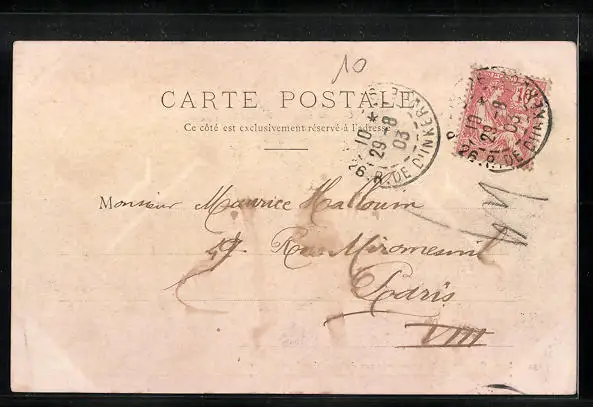 10
CARTE POSTALE
Ce côté est exclusivement réservé à l'adresse
10
29-8
03
26. R. DE DUNKERQUE
10
29-8
03
26. R. DE DUNKERQUE
Monsieur Maurice Halloum
Rue Miromesnil
Paris
VIII